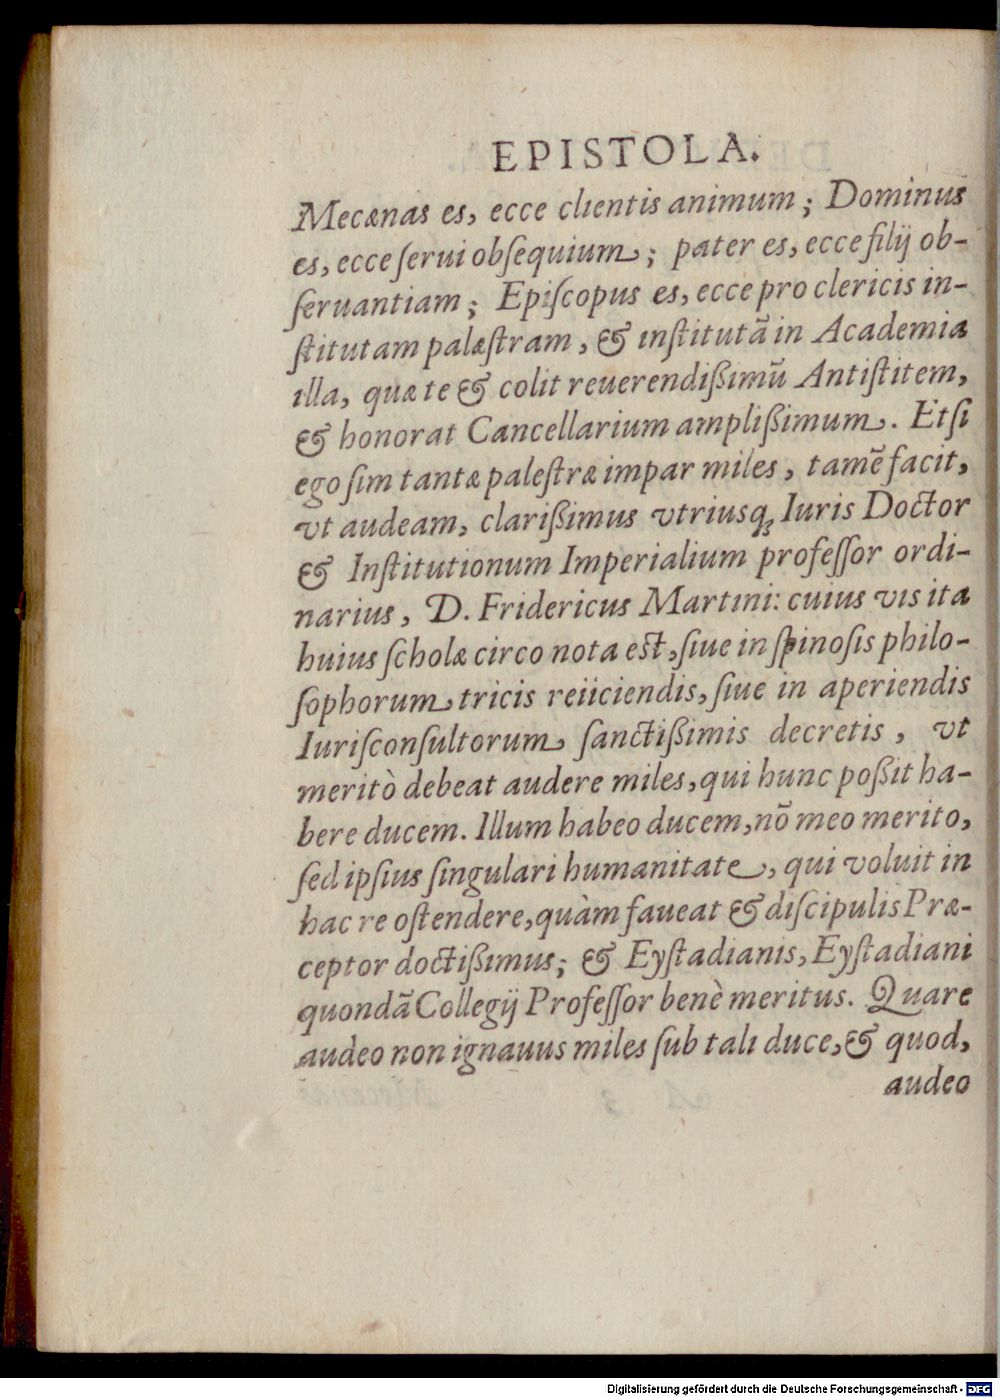 EPISTOLA.
Mecænas es, ecce clientis animum; Dominus
es, ecce ſerui obſequium; pater es, ecce filij ob-
ſeruantiam; Epiſcopus es, ecce pro clericis in-
ſtitutam palæſtram, & inſtitutã in Academia
illa, quæ te & colit reuerendißimũ Antiſtitem,
& honorat Cancellarium amplißimum. Etſi
ego ſim tantæ paleſtræ impar miles, tamẽ facit,
vt audeam, clarißimus vtriusq; Iuris Doctor
& Inſtitutionum Imperialium profeſſor ordi-
narius, D. Fridericus Martini: cuius vis ita
huius ſcholæ circo nota est, ſiue in ſpinoſis philo-
ſophorum tricis reiiciendis, ſiue in aperiendis
Iuriſconſultorum ſanctißimis decretis, vt
meritò debeat audere miles, qui hunc poßit ha-
bere ducem. Illum habeo ducem, nõ meo merito,
ſed ipſius ſingulari humanitate, qui voluit in
hac re oſtendere, quàm faueat & diſcipulis Præ-
ceptor doctißimus; & Eyſtadianis, Eyſtadiani
quondã Collegij Profeſſor benè meritus. Quare
audeo non ignauus miles ſub tali duce, & quod,
audeo
Digitalisierung gefördert durch die Deutsche Forschungsgemeinschaft - DFG